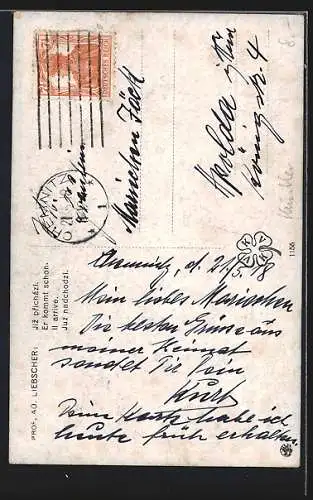 Fräulein
Mariechen Jäck
Apolda i/Thür
Königstr. 4
DEUTSCHES REICH
CHEMNITZ
1
Chemnitz, d. 21/5 18
Mein liebes Mariechen
Die besten Grüsse aus
meiner Heimat
sendet Dir Dein
Kurt
Deine Karte habe ich
heute früh erhalten.
PROF. AD. LIEBSCHER:
Již přichází.
Er kommt schon.
Il arrive.
Już nadchodzi.
1156